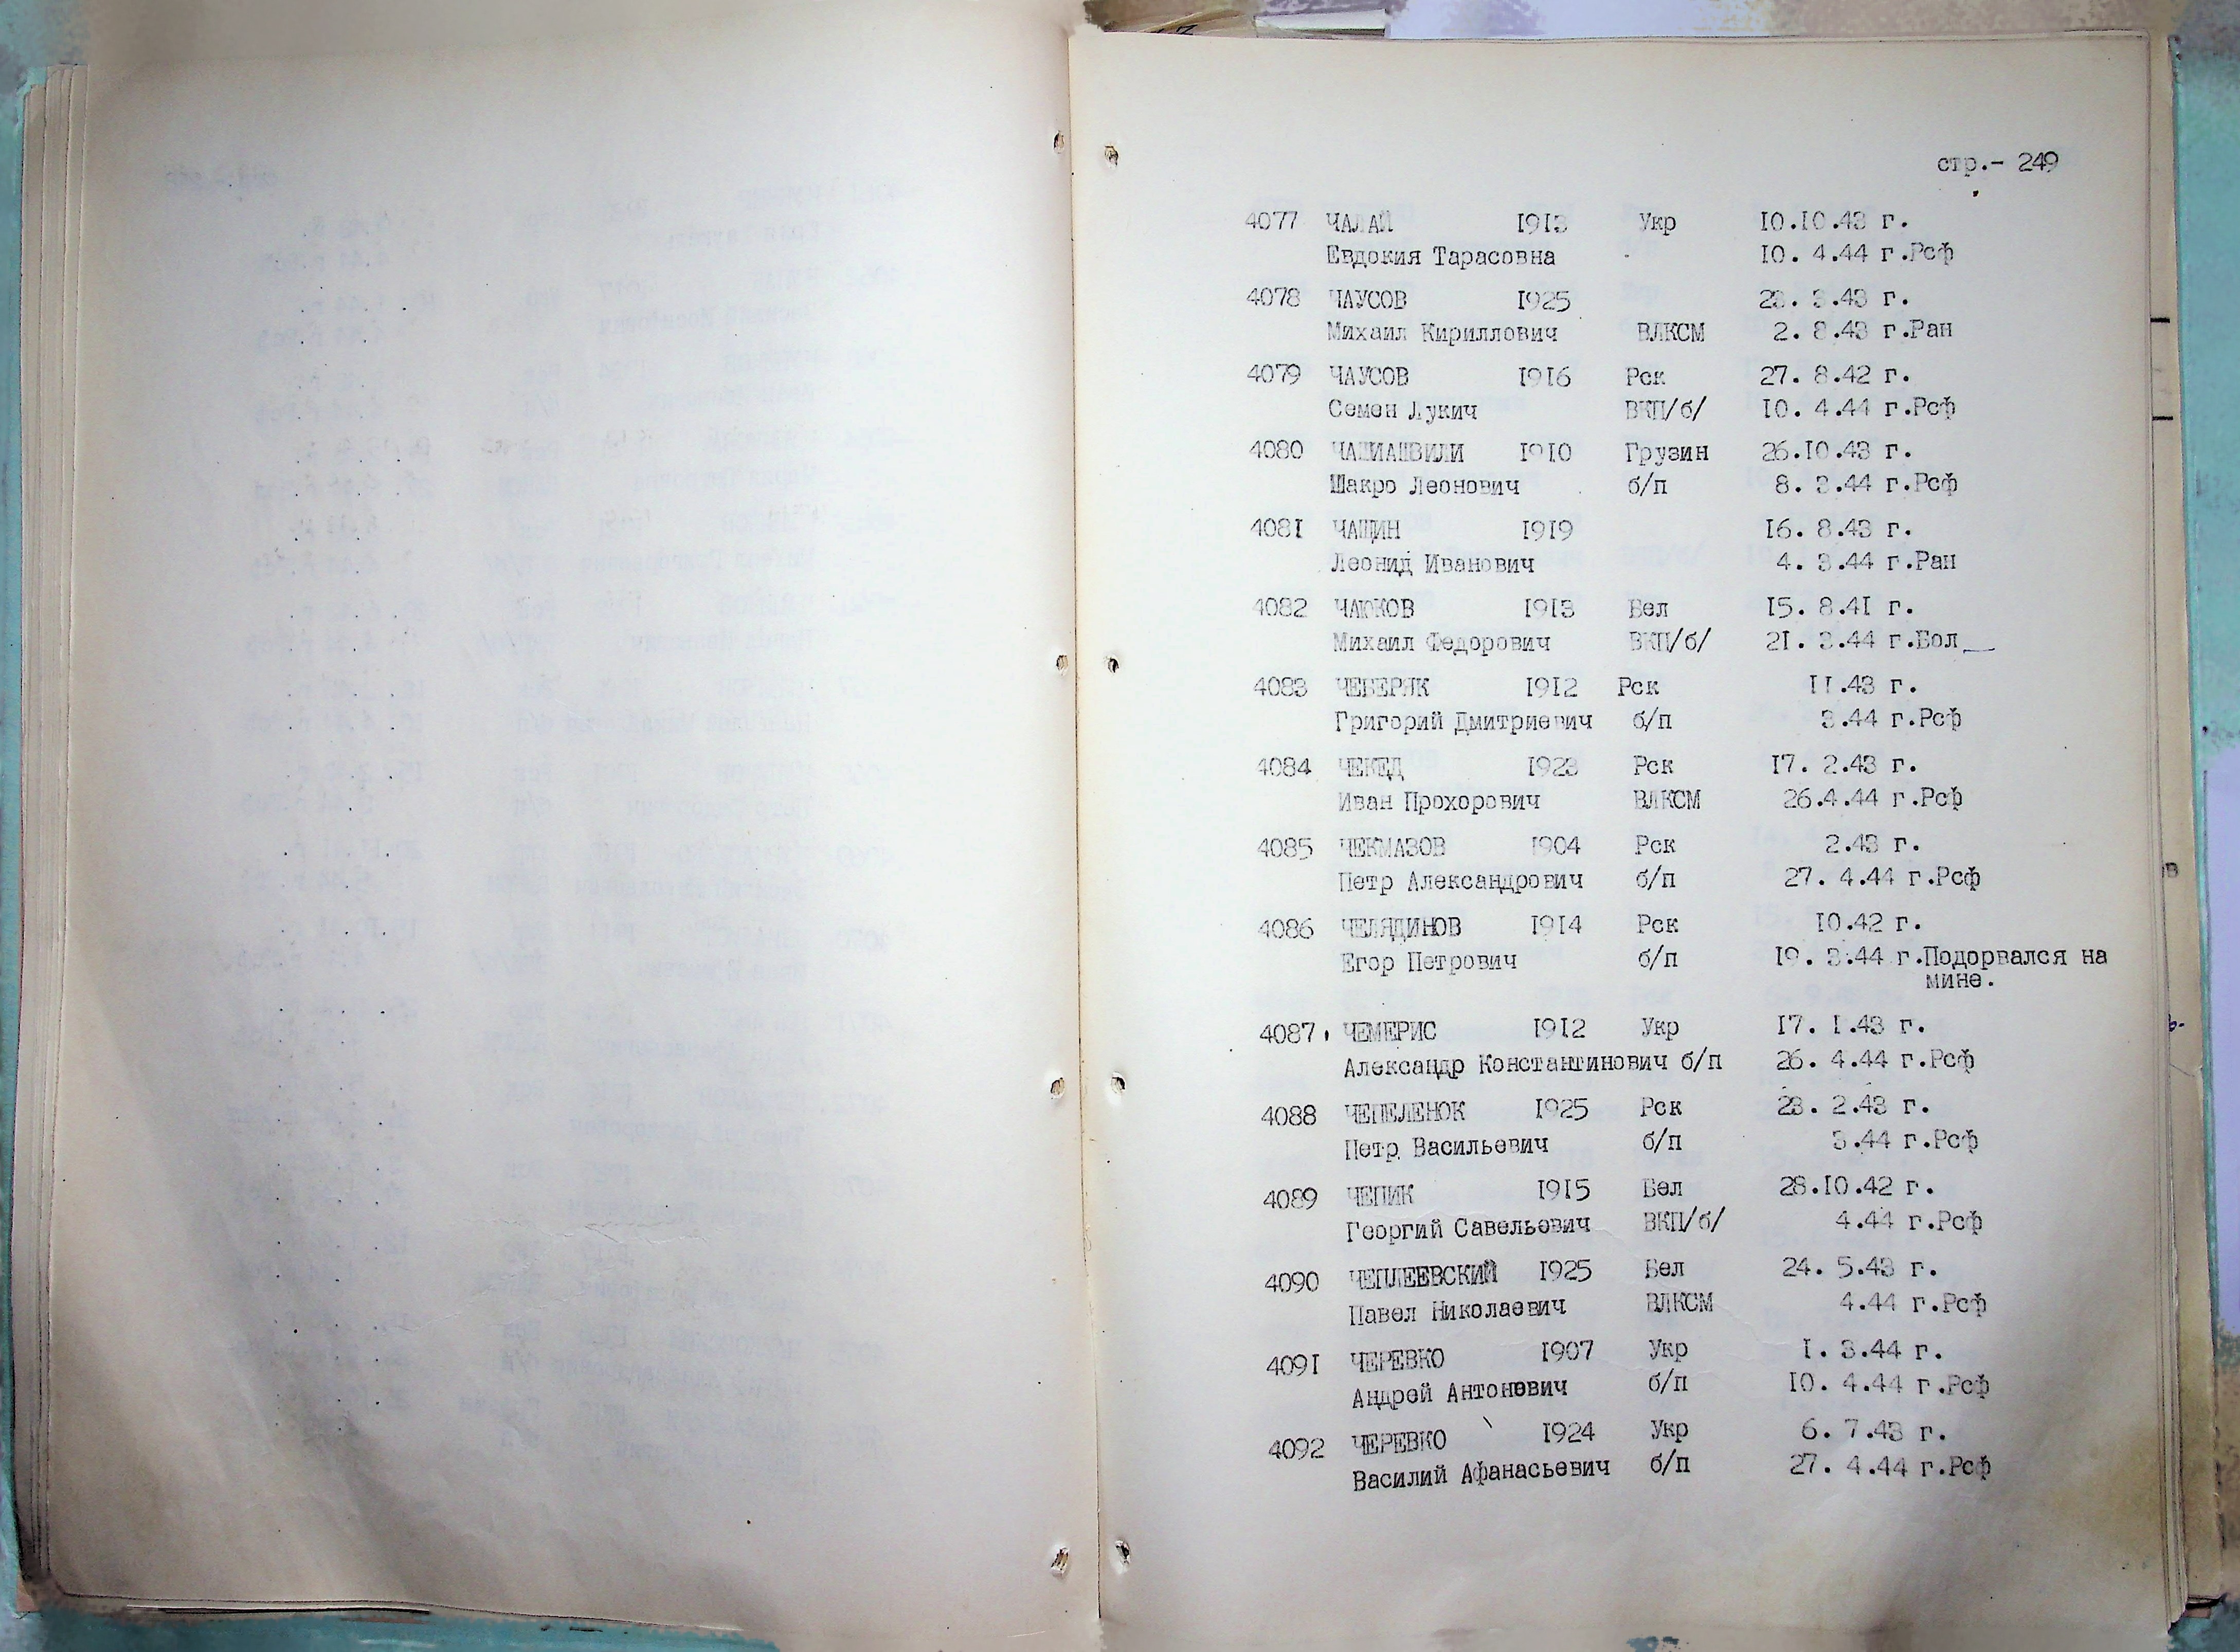 стр.- 249
4077 ЧАЛАЙ 1913 Укр 10.10.43 г.
Евдокия Тарасовна 10. 4.44 г.Рсф
4078 ЧАУСОВ 1925 23. 3.43 г.
Михаил Кириллович ВЛКСМ 2. 8.43 г.Ран
4079 ЧАУСОВ 1916 Рск 27. 8.42 г.
Семен Лукич ВКП/б/ 10. 4.44 г.Рсф
4080 ЧАШИАШВИЛИ 1910 Грузин 26.10.43 г.
Шакро Леонович б/п 8. 3.44 г.Рсф
4081 ЧАЩИН 1919 16. 8.43 г.
Леонид Иванович 4. 3.44 г.Ран
4082 ЧАЮКОВ 1913 Бел 15. 8.41 г.
Михаил Федорович ВКП/б/ 21. 3.44 г.Бол
4083 ЧЕБЕРЯК 1912 Рск 11.43 г.
Григорий Дмитриевич б/п 3.44 г.Рсф
4084 ЧЕКЕД 1923 Рск 17. 2.43 г.
Иван Прохорович ВЛКСМ 26.4.44 г.Рсф
4085 ЧЕКМАЗОВ 1904 Рск 2.43 г.
Петр Александрович б/п 27. 4.44 г.Рсф
4086 ЧЕЛЯДИНОВ 1914 Рск 10.42 г.
Егор Петрович б/п 19. 3.44 г.Подорвался на
мине.
4087 ЧЕМЕРИС 1912 Укр 17. 1.43 г.
Александр Константинович б/п 26. 4.44 г.Рсф
4088 ЧЕПЕЛЕНОК 1925 Рск 23. 2.43 г.
Петр Васильевич б/п 3.44 г.Рсф
4089 ЧЕПИК 1915 Бел 28.10.42 г.
Георгий Савельевич ВКП/б/ 4.44 г.Рсф
4090 ЧЕПЛЕЕВСКИЙ 1925 Бел 24. 5.43 г.
Павел Николаевич ВЛКСМ 4.44 г.Рсф
4091 ЧЕРЕВКО 1907 Укр 1. 3.44 г.
Андрей Антонович б/п 10. 4.44 г.Рсф
4092 ЧЕРЕВКО 1924 Укр 6. 7.43 г.
Василий Афанасьевич б/п 27. 4.44 г.Рсф